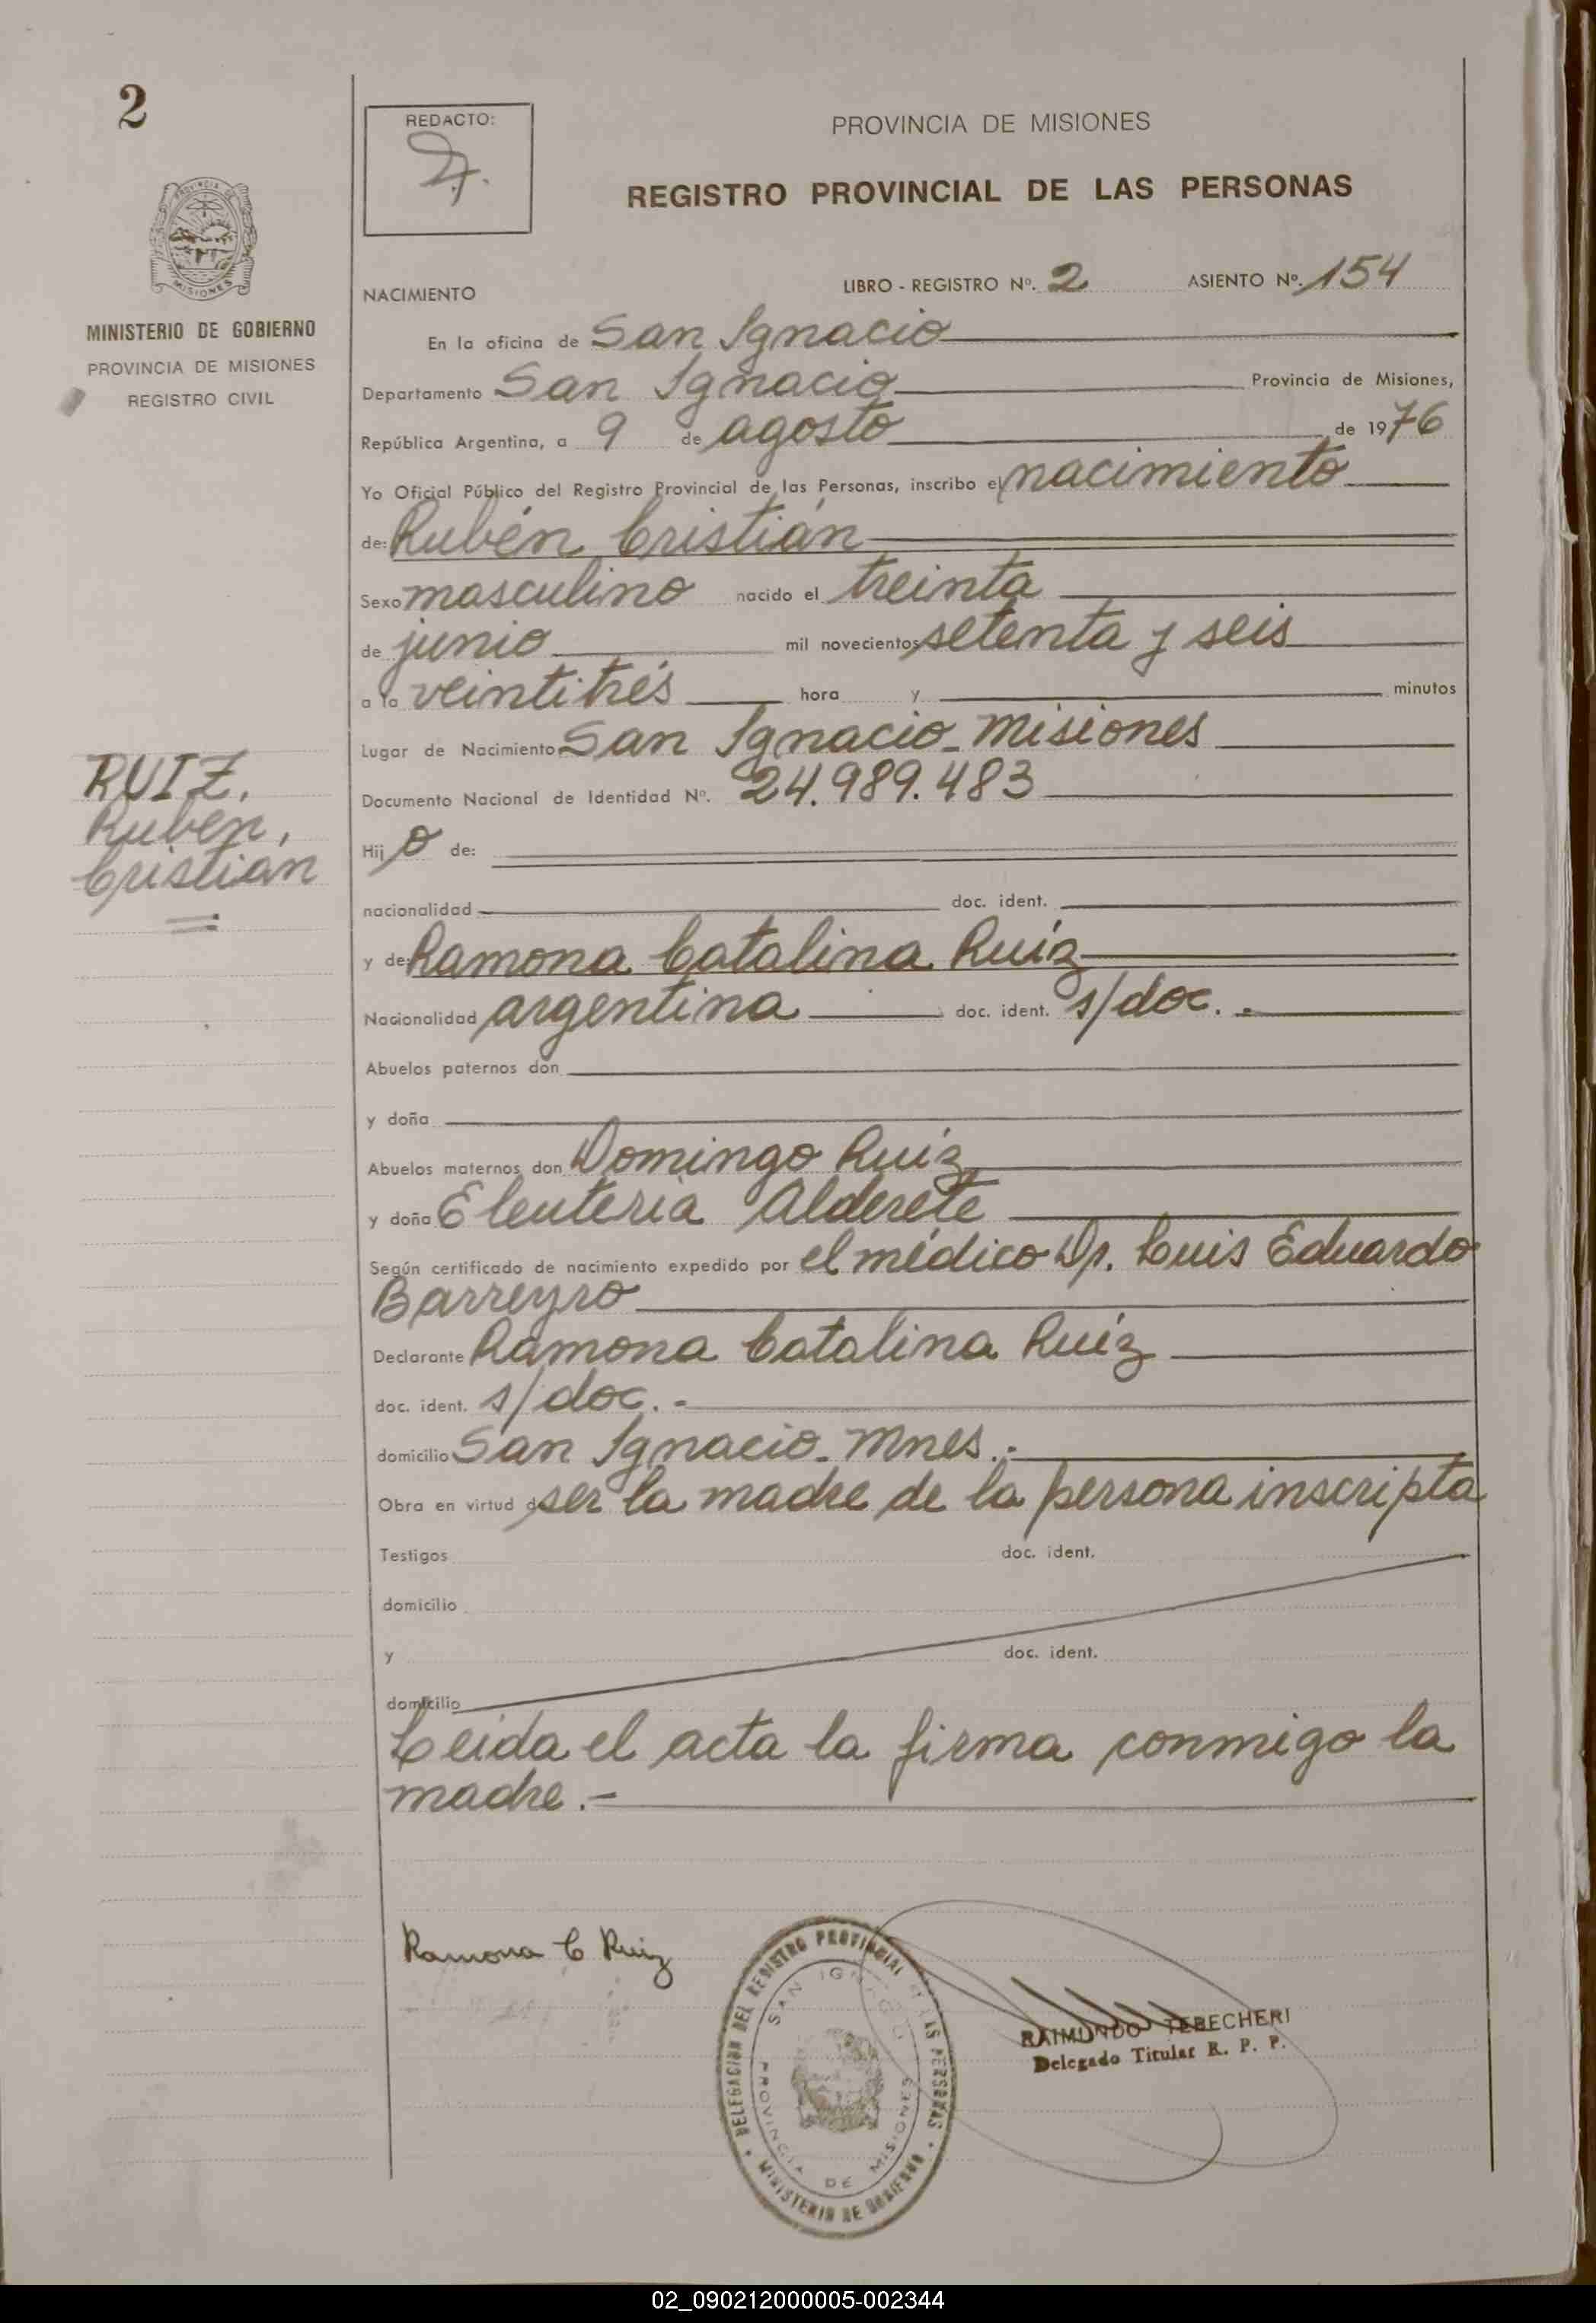 2
REDACTO:
PROVINCIA DE MISIONES
REGISTRO PROVINCIAL DE LAS PERSONAS
PROVINCIA DE
MISIONES
MINISTERIO DE GOBIERNO
PROVINCIA DE MISIONES
REGISTRO CIVIL
NACIMIENTO
LIBRO - REGISTRO Nº. 2 ASIENTO Nº. 154
En la oficina de San Ignacio
Departamento San Ignacio Provincia de Misiones,
República Argentina, a 9 de agosto de 1976
Yo Oficial Público del Registro Provincial de las Personas, inscribo el nacimiento
de: Rubén Cristián
Sexo masculino nacido el treinta
de junio mil novecientos setenta y seis
a la veintitrés hora y minutos
Lugar de Nacimiento San Ignacio - Misiones
Documento Nacional de Identidad Nº. 24.989.483
RUIZ,
Rubén,
Cristián
Hij o de:
nacionalidad doc. ident.
y de: Ramona Catalina Ruíz
Nacionalidad argentina doc. ident. s/doc. -
Abuelos paternos don
y doña
Abuelos maternos don Domingo Ruíz
y doña Eleuteria Alderete
Según certificado de nacimiento expedido por el médico Dr. Luis Eduardo
Barreyro
Declarante Ramona Catalina Ruíz
doc. ident. s/doc. -
domicilio San Ignacio - Mnes. -
Obra en virtud de ser la madre de la persona inscripta
Testigos doc. ident.
domicilio
y doc. ident.
domicilio
Leída el acta la firma conmigo la
madre. -
Ramona C Ruiz
DELEGACION DEL REGISTRO PROVINCIAL DE LAS PERSONAS
SAN IGNACIO
PROVINCIA DE MISIONES
MINISTERIO DE GOBIERNO
RAIMUNDO TEBECHERI
Delegado Titular R. P. P.
02_090212000005-002344